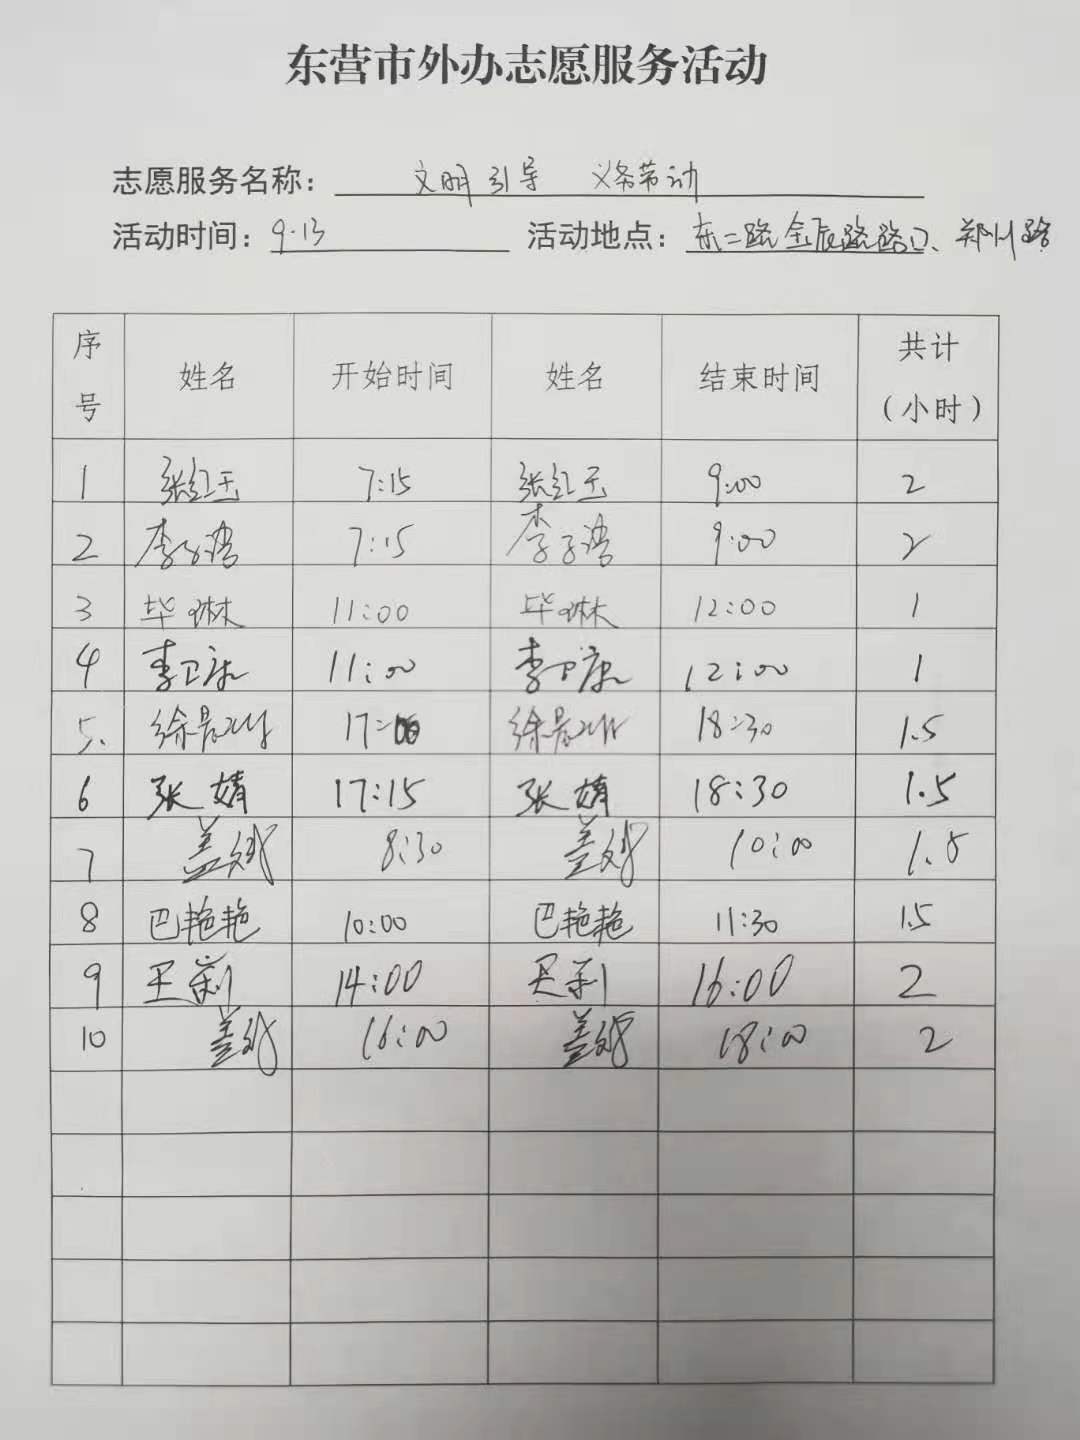 东营市外办志愿服务活动
志愿服务名称： 文明引导 义务劳动
活动时间：9.13 活动地点：东二路金辰路路口、郑州路
序号 姓名 开始时间 姓名 结束时间 共计（小时）
1 张红玉 7:15 张红玉 9:00 2
2 李子浩 7:15 李子浩 9:00 2
3 毕琳 11:00 毕琳 12:00 1
4 李卫康 11:00 李卫康 12:00 1
5. 徐 17:00 徐 18:30 1.5
6 张婧 17:15 张婧 18:30 1.5
7 盖斌 8:30 盖斌 10:00 1.5
8 巴艳艳 10:00 巴艳艳 11:30 1.5
9 王莉 14:00 王莉 16:00 2
10 盖斌 16:00 盖斌 18:00 2